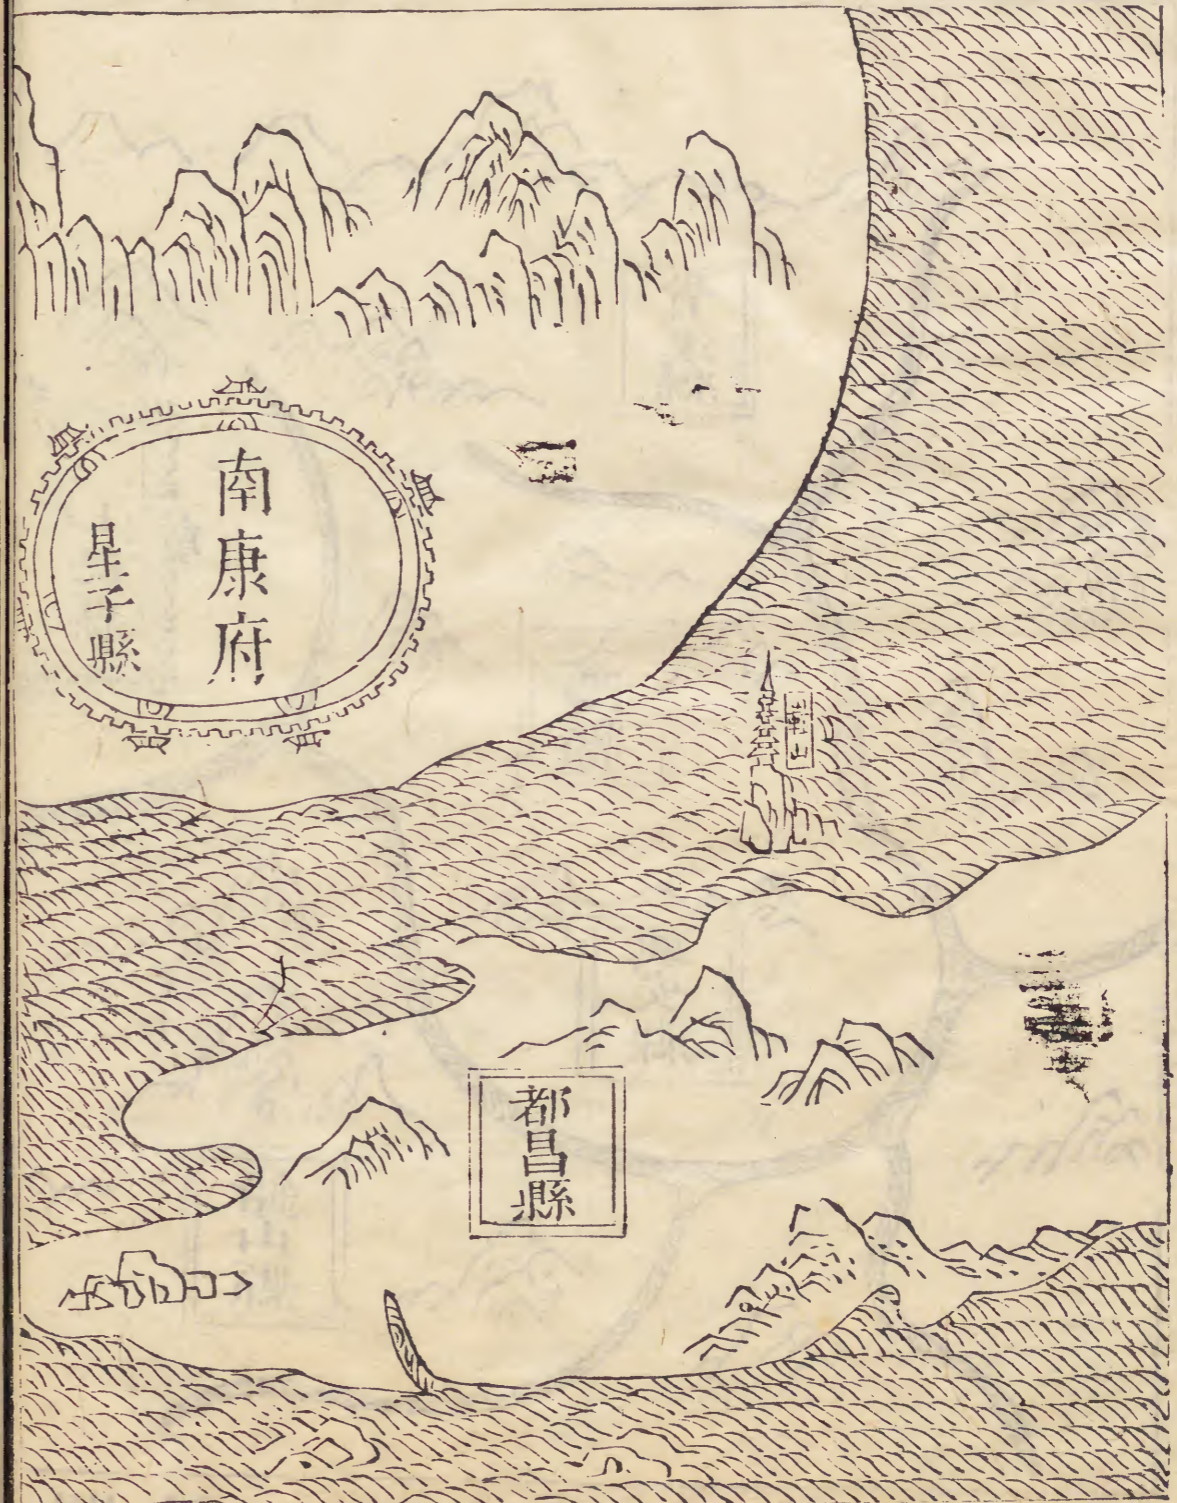 南康府
星子縣
都昌縣